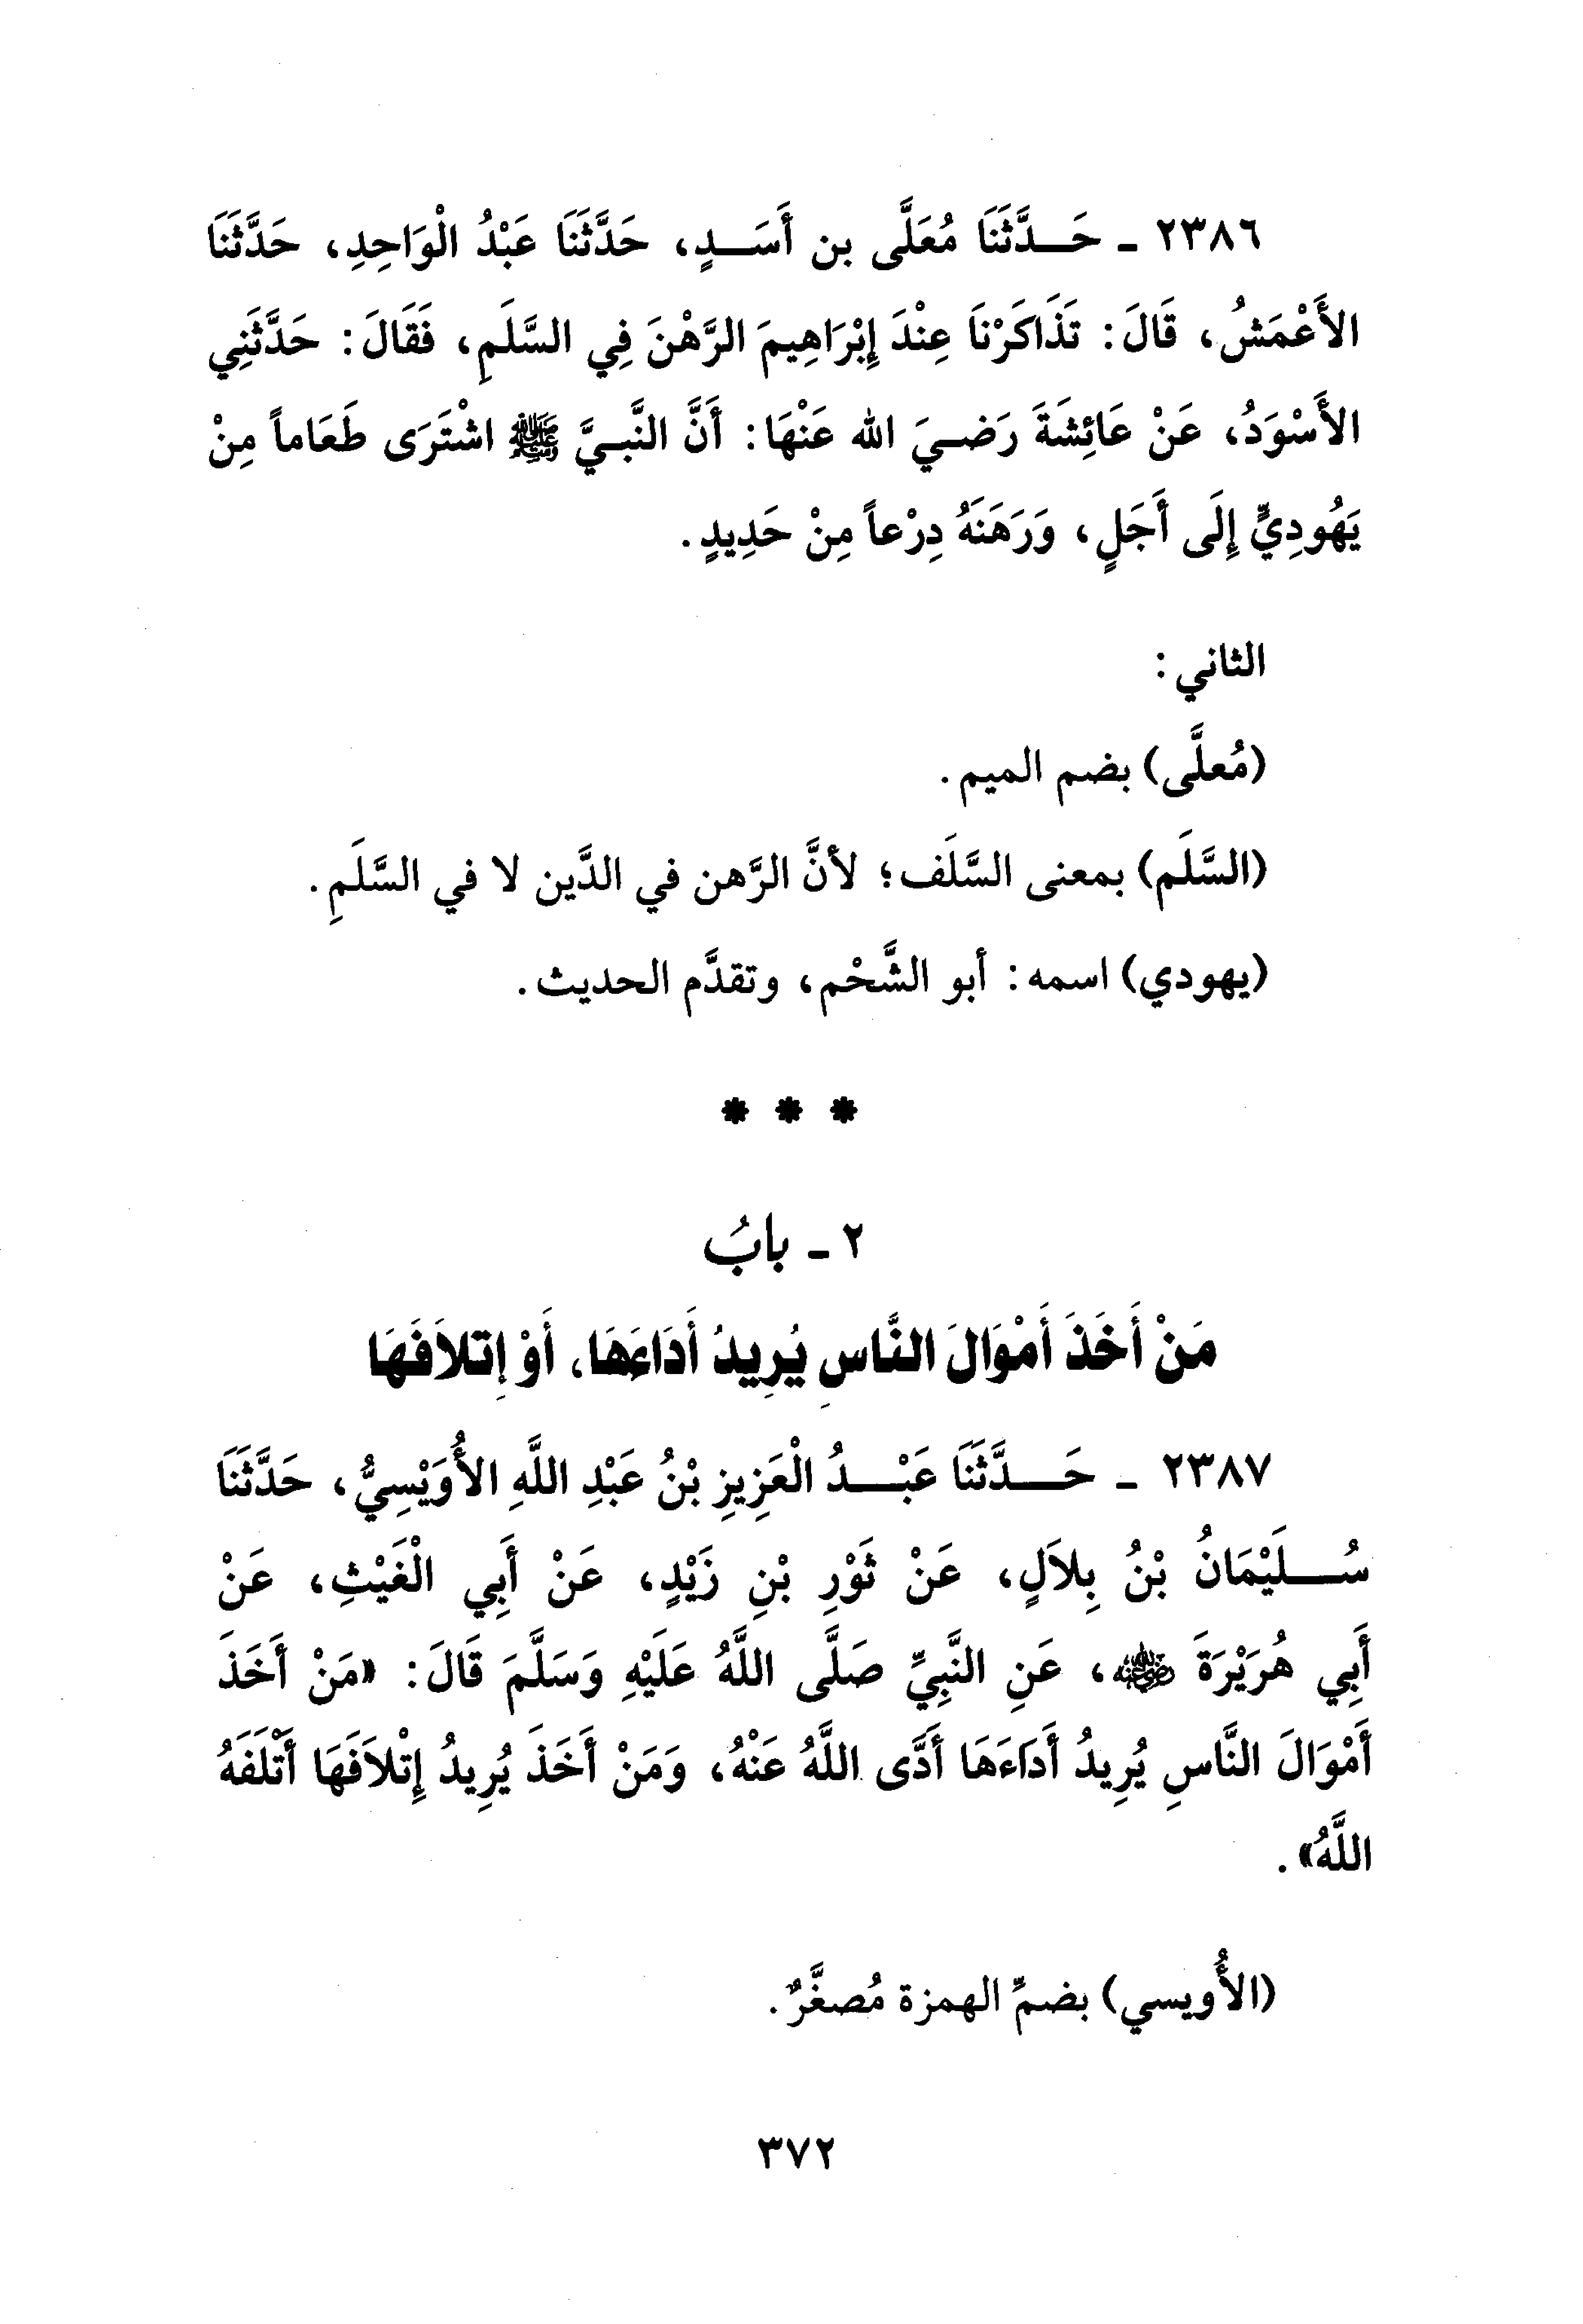 ٢٣٨٦ ـ حَـدَّثَنَا مُعَلَّى بن أَسَـدٍ، حَدَّثَنَا عَبْدُ الْوَاحِدِ، حَدَّثَنَا
الأَعْمَشُ، قَالَ: تَذَاكَرْنَا عِنْدَ إِبْرَاهِيمَ الرَّهْنَ فِي السَّلَمِ، فَقَالَ: حَدَّثَنِي
الأَسْوَدُ، عَنْ عَائِشَةَ رَضـيَ الله عَنْهَا: أَنَّ النَّبـيَّ ﷺ اشْتَرَى طَعَاماً مِنْ
يَهُودِيٍّ إِلَى أَجَلٍ، وَرَهَنَهُ دِرْعاً مِنْ حَدِيدٍ.
الثاني:
(مُعلَّى) بضم الميم.
(السَّلَم) بمعنى السَّلَف؛ لأنَّ الرَّهن في الدَّين لا في السَّلَمِ.
(يهودي) اسمه: أبو الشَّحْم، وتقدَّم الحديث.
* * *
٢ ـ بابُ
مَنْ أَخَذَ أَمْوَالَ النَّاسِ يُرِيدُ أَدَاءَهَا، أَوْ إِتلاَفَهَا
٢٣٨٧ ـ حَـدَّثَنَا عَبْـدُ الْعَزِيزِ بْنُ عَبْدِ اللَّهِ الأُوَيْسِيُّ، حَدَّثَنَا
سُـلَيْمَانُ بْنُ بِلاَلٍ، عَنْ ثَوْرِ بْنِ زَيْدٍ، عَنْ أَبِي الْغَيْثِ، عَنْ
أَبِي هُرَيْرَةَ ﵁، عَنِ النَّبِيِّ صَلَّى اللَّهُ عَلَيْهِ وَسَلَّمَ قَالَ: «مَنْ أَخَذَ
أَمْوَالَ النَّاسِ يُرِيدُ أَدَاءَهَا أَدَّى اللَّهُ عَنْهُ، وَمَنْ أَخَذَ يُرِيدُ إِتْلاَفَهَا أَتْلَفَهُ
اللَّهُ».
(الأُويسي) بضمِّ الهمزة مُصغَّرٌ.
٣٧٢